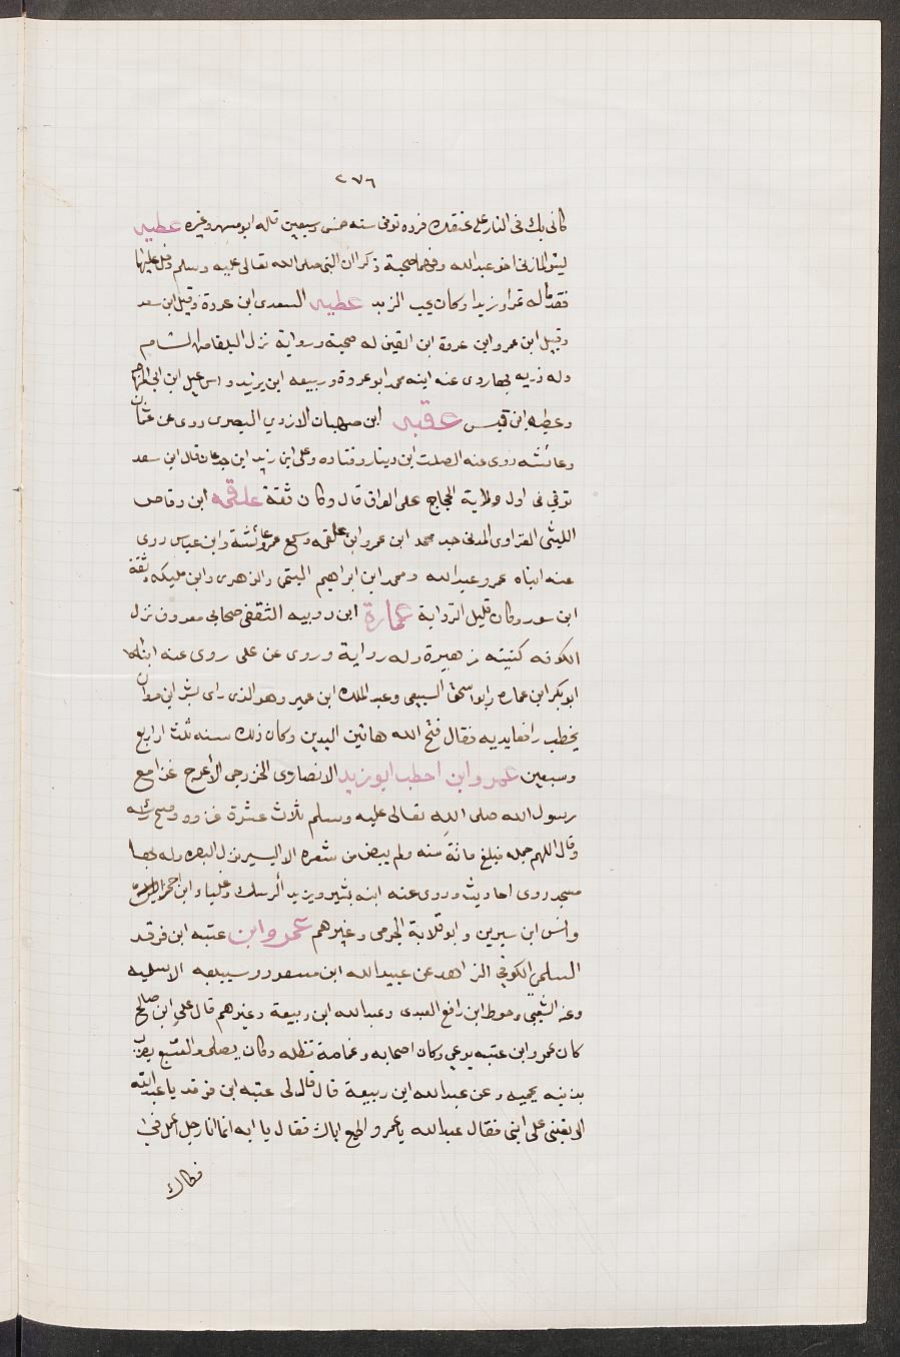 ٢٧٦
كاني بك في النار على عنقك فروه توفى سنه خمس وسبعين قاله ابو مسهر وغيره عطيه
بشر المازنى اخو عبدالله وفيهما صحبة ذكر ان النبي صلى الله تعالى عليه وسلم دخل عليها
فقدما له تمرا وزبدا وكان يحب الزبد عطيه السعدى ابن عروة وقيل ابن سعد
وقيل ابن عمرو ابن عروة ابن القين له صحبة ورواية نزل البلقا من الشام
وله ذريه بها روى عنه ابنه محمد ابو عروة وربيعه ابن يزيد واسمعيل ابن ابي المهاجر
وعطيه ابن قيس عقبه ابن صهبان الازدي البصرى روى عن عثمان
وعائشه روى عنه الصلت ابن دينار وقتاده وعلى ابن زيد ابن جدعان قال ابن سعد
توفي في اول ولاية الحجاج على العراق قال وكان ثقة علقمه ابن وقاص
الليثى المدني جد محمد ابن عمرو ابن علقمه وسمع عمر وعائشة وابن عباس روى
عنه ابناه عمرو عبدالله ومحمد ابن ابراهيم التيمى والزهرى وابن مليكه وثقة
ابن سعد وكان قليل الرواية عمارة ابن رويبه الثقفى صحابي معروف نزل
الكوفه كنيته زهيرة وله رواية وروى عن على روى عنه ابناه
ابو بكر ابن عماره وابو اسحق السبيعى وعبد الملك ابن عمير وهو الذى راى بشر ابن مروان
يخطب رافعا يديه فقال قبح الله هاتين اليدين وكان ذلك سنه ثلث اربع
وسبعين عمرو ابن احطب ابو زيد الانصاري الخزرجى الاعرج غزا مع
رسول الله صلى الله تعالى عليه وسلم ثلاث عشرة غزوه ومسح راسه
وقال اللهم جمله فبلغ مائة سنه ولم يبيض من شعره الا اليسير نزل البصره وله بها
مسجد روى احاديث وروى عنه ابنه بشير ويزيد الرسك وعلباء ابن احمر
وانس ابن سيرين وابو قلابة الجرمى وغيرهم عمرو ابن عتبه ابن فرقد
السلمى الكوفي الزاهد عن عبيدالله ابن مسعود وسبيعه الاسلميه
وعنه الشعبى وحوط ابن رافع العبدى وعبدالله ابن ربيعة وغيرهم قال على ابن صالح
كان عمرو ابن عتبه يرعى ركاب اصحابه وغمامة تظله وكان يصلى والسبع يضرب
بذنبه يحميه وعن عبدالله ابن ربيعة قال قال لى عتبه ابن فرقد يا عبدالله
الا تعينني على ابنى فقال عبدالله يا عمرو اطع اباك فقال يا ابه انما انا رجل اعمل في
فكاك